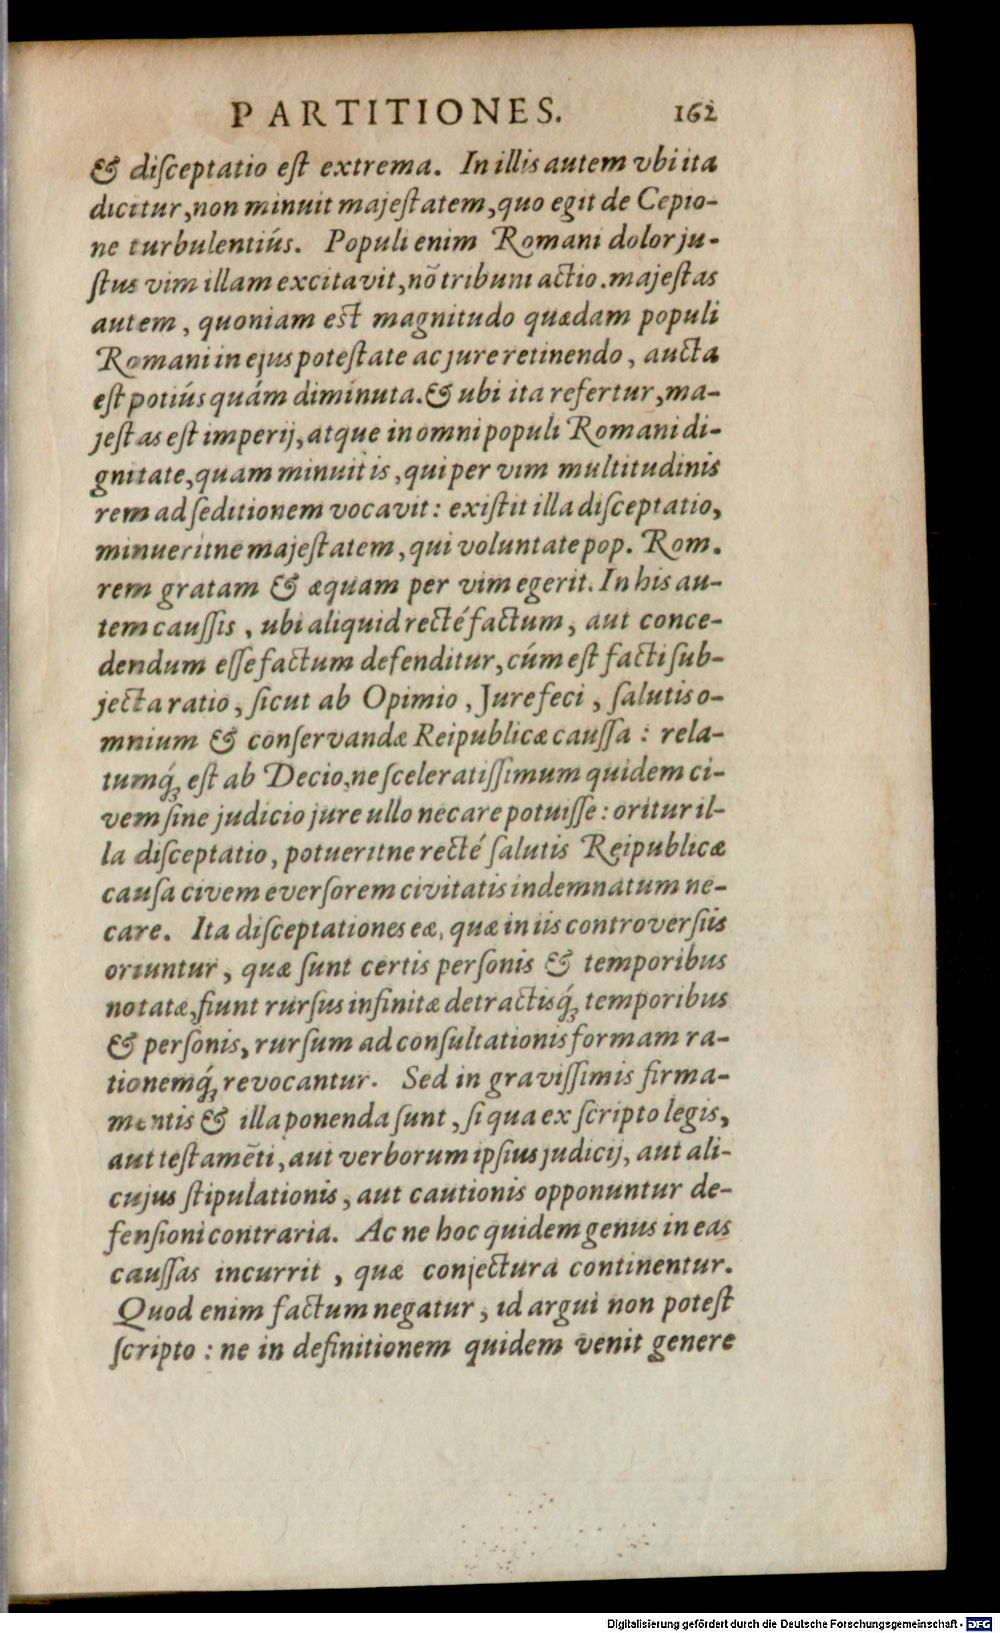 PARTITIONES. 162
& diſceptatio eſt extrema. In illis autem vbi ita
dicitur, non minuit majeſtatem, quo egit de Cepio-
ne turbulentiús. Populi enim Romani dolor ju-
ſtus vim illam excitavit, nõ tribuni actio. majeſtas
autem, quoniam eſt magnitudo quædam populi
Romani in ejus poteſtate ac jure retinendo, aucta
eſt potiús quám diminuta. & ubi ita refertur, ma-
jeſtas eſt imperij, atque in omni populi Romani di-
gnitate, quam minuit is, qui per vim multitudinis
rem ad ſeditionem vocavit: exiſtit illa diſceptatio,
minueritne majeſtatem, qui voluntate pop. Rom.
rem gratam & æquam per vim egerit. In his au-
tem cauſſis, ubi aliquid recté factum, aut conce-
dendum eſſe factum defenditur, cúm eſt facti ſub-
jecta ratio, ſicut ab Opimio, Jure feci, ſalutis o-
mnium & conſervandæ Reipublicæ cauſſa: rela-
tumq́ꝫ eſt ab Decio, ne ſceleratiſſimum quidem ci-
vem ſine judicio jure ullo necare potuiſſe: oritur il-
la diſceptatio, potueritne recté ſalutis Reipublicæ
cauſa civem everſorem civitatis indemnatum ne-
care. Ita diſceptationes eæ, quæ in iis controverſiis
oriuntur, quæ ſunt certis perſonis & temporibus
notatæ, fiunt rurſus infinitæ detractisq́ꝫ temporibus
& perſonis, rurſum ad conſultationis formam ra-
tionemq́ꝫ revocantur. Sed in graviſſimis firma-
mentis & illa ponenda ſunt, ſi qua ex ſcripto legis,
aut teſtamẽti, aut verborum ipſius judicij, aut ali-
cujus ſtipulationis, aut cautionis opponuntur de-
fenſioni contraria. Ac ne hoc quidem genus in eas
cauſſas incurrit, quæ conjectura continentur.
Quod enim factum negatur, id argui non poteſt
ſcripto: ne in definitionem quidem venit genere
Digitalisierung gefördert durch die Deutsche Forschungsgemeinschaft - DFG